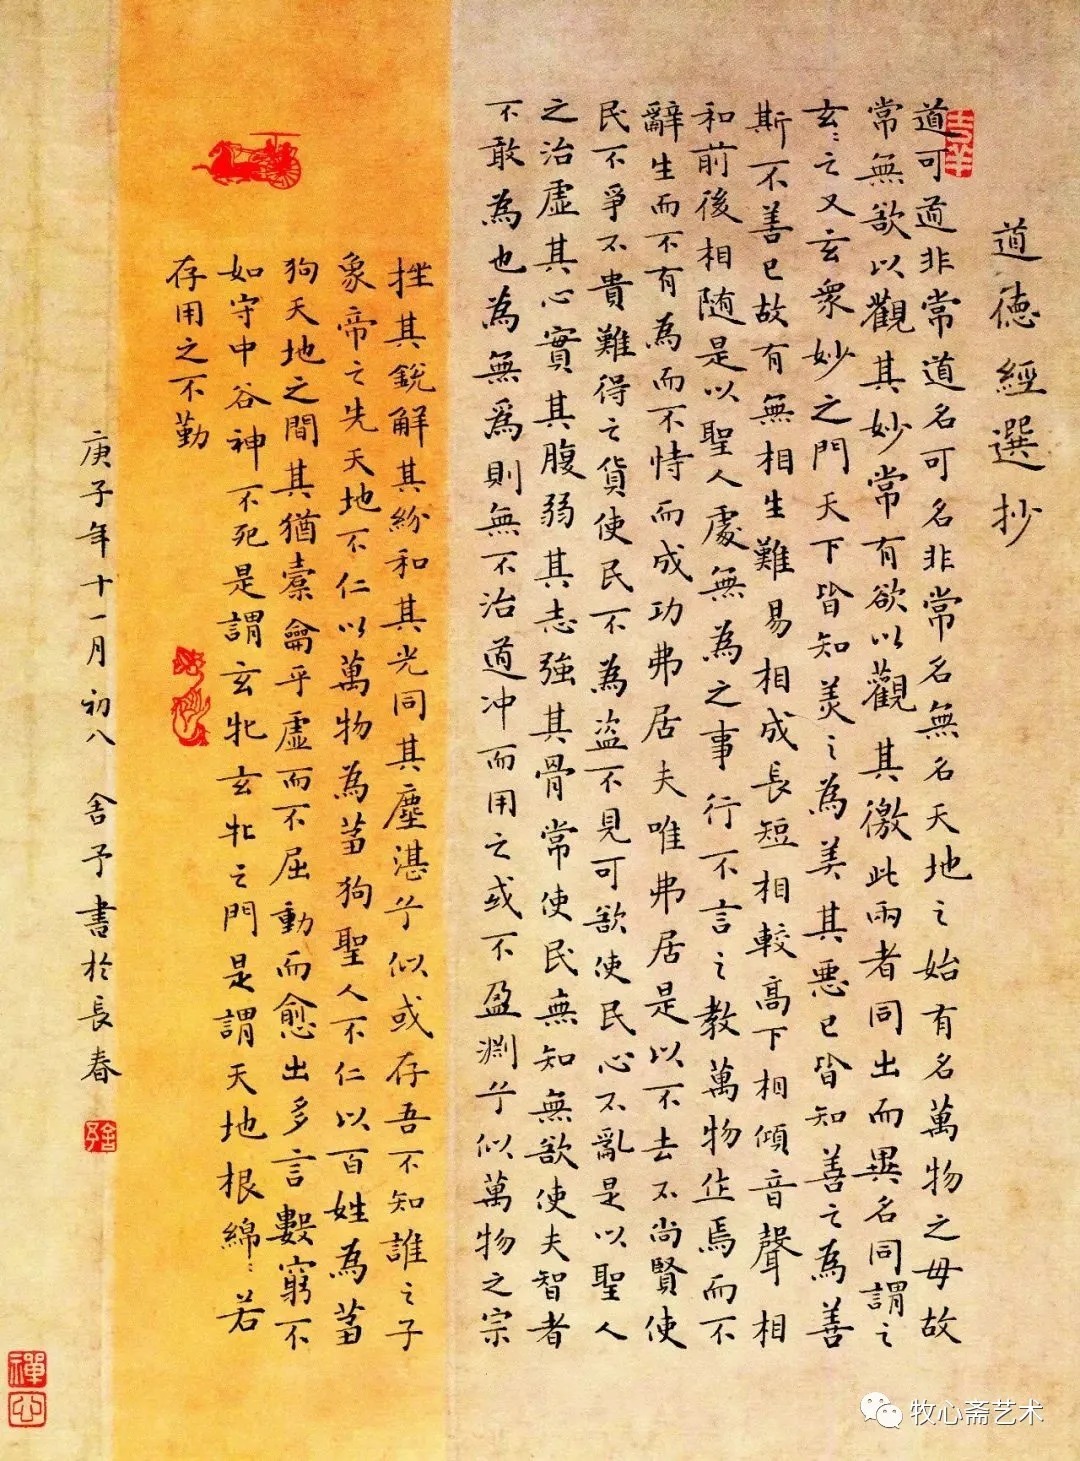 道德經選抄
道可道非常道名可名非常名無名天地之始有名萬物之母故
常無欲以觀其妙常有欲以觀其徼此兩者同出而異名同謂之
玄玄之又玄衆妙之門天下皆知美之為美其惡已皆知善之為善
斯不善已故有無相生難易相成長短相較高下相傾音聲相
和前後相随是以聖人處無為之事行不言之教萬物作焉而不
辭生而不有為而不恃而成功弗居夫唯弗居是以不去不尚賢使
民不爭不貴難得之貨使民不為盜不見可欲使民心不亂是以聖人
之治虛其心實其腹弱其志強其骨常使民無知無欲使夫智者
不敢為也為無為則無不治道冲而用之或不盈淵兮似萬物之宗
挫其銳解其紛和其光同其塵湛兮似或存吾不知誰之子
象帝之先天地不仁以萬物為芻狗聖人不仁以百姓為芻
狗天地之間其猶橐籥乎虛而不屈動而愈出多言數窮不
如守中谷神不死是謂玄牝玄牝之門是謂天地根綿綿若
存用之不勤
庚子年十一月初八 舍予書於長春
吉羊
禪心
牧心斋艺术